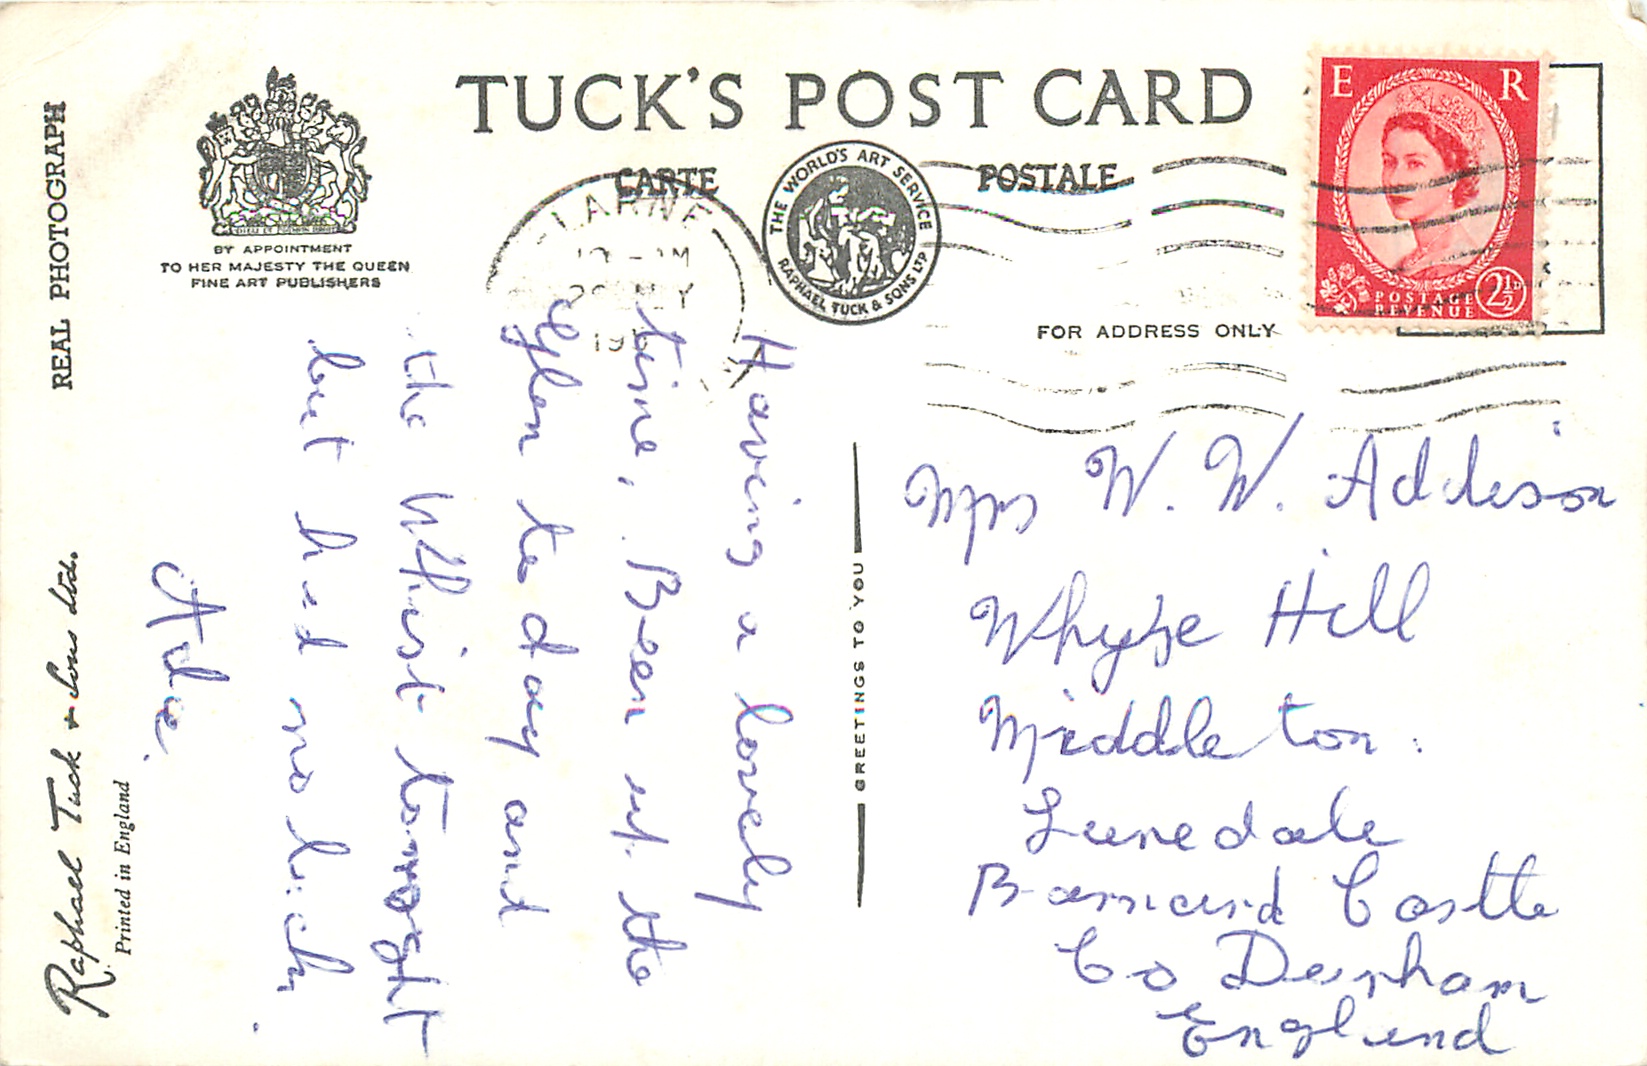 TUCK'S POST CARD
CARTE POSTALE
REAL PHOTOGRAPH
BY APPOINTMENT
TO HER MAJESTY THE QUEEN
FINE ART PUBLISHERS
THE WORLD'S ART SERVICE
RAPHAEL TUCK & SONS LTD
LARNE
E R
POSTAGE
REVENUE
2½D
FOR ADDRESS ONLY
Having a lovely
time, Been up the
glen to day and
the Whist tonight
but had no luck
GREETINGS TO YOU
Mrs W. W. Addison
Hill
Middleton
Lunedale
Barnard Castle
Co Durham
England
Raphael Tuck & Sons Ltd.
Printed in England